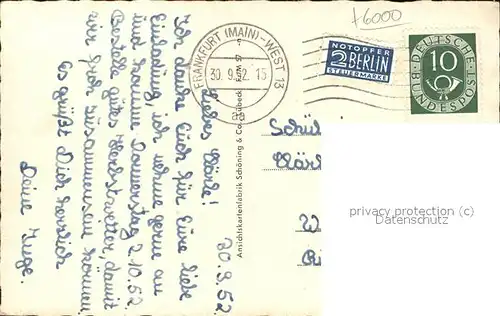 +6000
FRANKFURT (MAIN)-WEST 13
30.9.52.15
aa
NOTOPFER
2 BERLIN
STEUERMARKE
DEUTSCHE
BUNDESPOST
10
30.9.52.
Liebes Klärle!
Ich danke Euch für Eure liebe
Einladung, ich nehme gerne an
und komme Donnerstag 2.10.52.
Bestelle gutes Herbstwetter, damit
wir froh zusammensein können.
Es grüßt Dich herzlich
Deine Inge.
Ansichtskartenfabrik Schöning & Co., Lübeck
Schül
Klärl
W
privacy protection (c)
Datenschutz